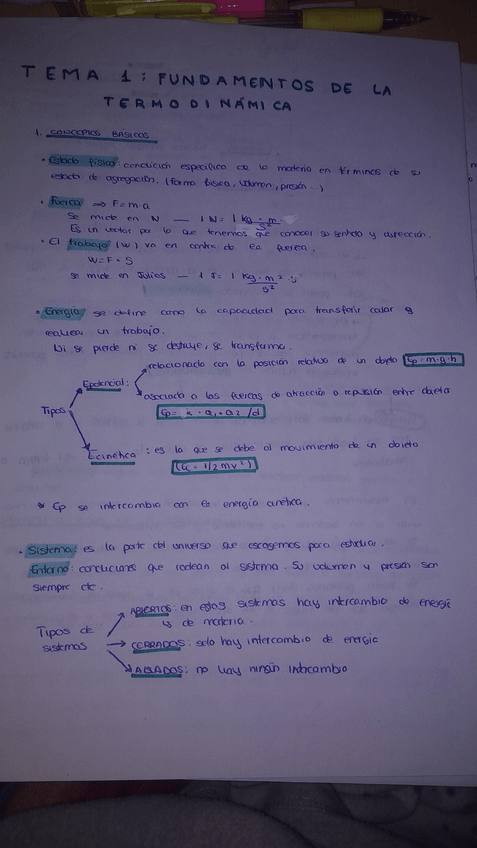 TEMA 1: FUNDAMENTOS DE LA
TERMODINÁMICA
1. CONCEPTOS BÁSICOS
· Estado físico: condición específica de la materia en términos de su
estado de agregación. (forma física, volumen, presión.)
· Fuerza ⇒ F=m·a
Se mide en N — 1 N = 1 kg · m / s²
Es un vector por lo que tenemos que conocer su sentido y dirección.
· El trabajo (w) va en contra de la fuerza.
W = F · S
Se mide en Julios — 1 J = 1 kg · m² / s²
· Energía se define como la capacidad para transferir calor y
realizar un trabajo.
Ni se pierde ni se destruye, se transforma.
relacionado con la posición relativa de un objeto Ep=m·g·h
Tipos Epotencial:
asociado a las fuerzas de atracción o repulsión entre objetos
Ep= k · q1 · q2 /d
Ecinética : es la que se debe al movimiento de un objeto
Ec = 1/2 mv²
* Ep se intercambia con la energía cinética.
· Sistema: es la parte del universo que escogemos para estudiar.
Entorno: condiciones que rodean al sistema. Su volumen y presión son
siempre cte.
ABIERTOS: en estos sistemas hay intercambio de energía
y de materia.
Tipos de
sistemas
CERRADOS: solo hay intercambio de energía
AISLADOS: no hay ningún intercambio